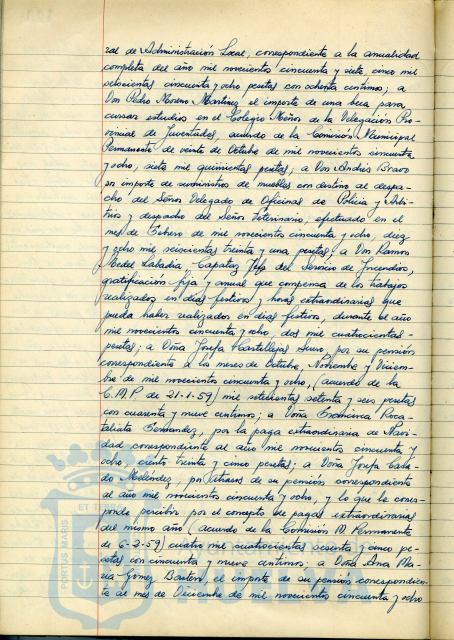 ral de Administración Local, correspondiente a la anualidad
completa del año mil novecientos cincuenta y siete, cinco mil
ochocientas cincuenta y ocho pesetas con ochenta centimos; a
Don Pedro Moreno Martinez, el importe de una beca para
cursar estudios en el Colegio Menor de la Delegación Pro-
vincial de Juventudes, acuerdo de la Comisión Municipal
Permanente de veinte de Octubre de mil novecientos cincuenta
y ocho, siete mil quinientas pesetas; a Don Andrés Bravo
en importe de suministros de muebles con destino al despa-
cho del Señor Delegado de Oficinas de Policia y Arbi-
trios y despacho del Señor Veterinario, efectuado en el
mes de Febrero de mil novecientos cincuenta y ocho, diez
y ocho mil seiscientas treinta y una pesetas; a Don Ramon
Medel Labadia, Capataz Jefe del Servicio de Incendios,
gratificación fija y anual que compensa de los trabajos
realizados en dias festivos y horas extraordinarias que
pueda haber realizados en dias festivos, durante el año
mil novecientos cincuenta y ocho, dos mil cuatrocientas-
pesetas; a Doña Josefa Castillejos por su pensión
correspondiente a los meses de Octubre, Noviembre y Diciem-
bre de mil novecientos cincuenta y ocho, (acuerdo de la
C.M.P. de 21-1-59) mil setecientas setenta y seis pesetas
con cuarenta y nueve centimos; a Doña Francisca Roca-
Fernandez, por la paga extraordinaria de Navi-
dad correspondiente al año mil novecientos cincuenta y
ocho, ciento treinta y cinco pesetas; a Doña Josefa
Melendez, por atrasos de su pensión correspondiente
al año mil novecientos cincuenta y ocho, y lo que le corres-
ponde percibir por el concepto de pagas extraordinarias
del mismo año (acuerdo de la Comisión M. Permanente
de 6-2-59) cuatro mil cuatrocientas sesenta y cinco pe-
setas con cincuenta y nueve centimos; a Doña Ana Ma-
ria Gomez, el importe de su pensión correspondien-
te al mes de Diciembre de mil novecientos cincuenta y ocho
PORTUS MARIS